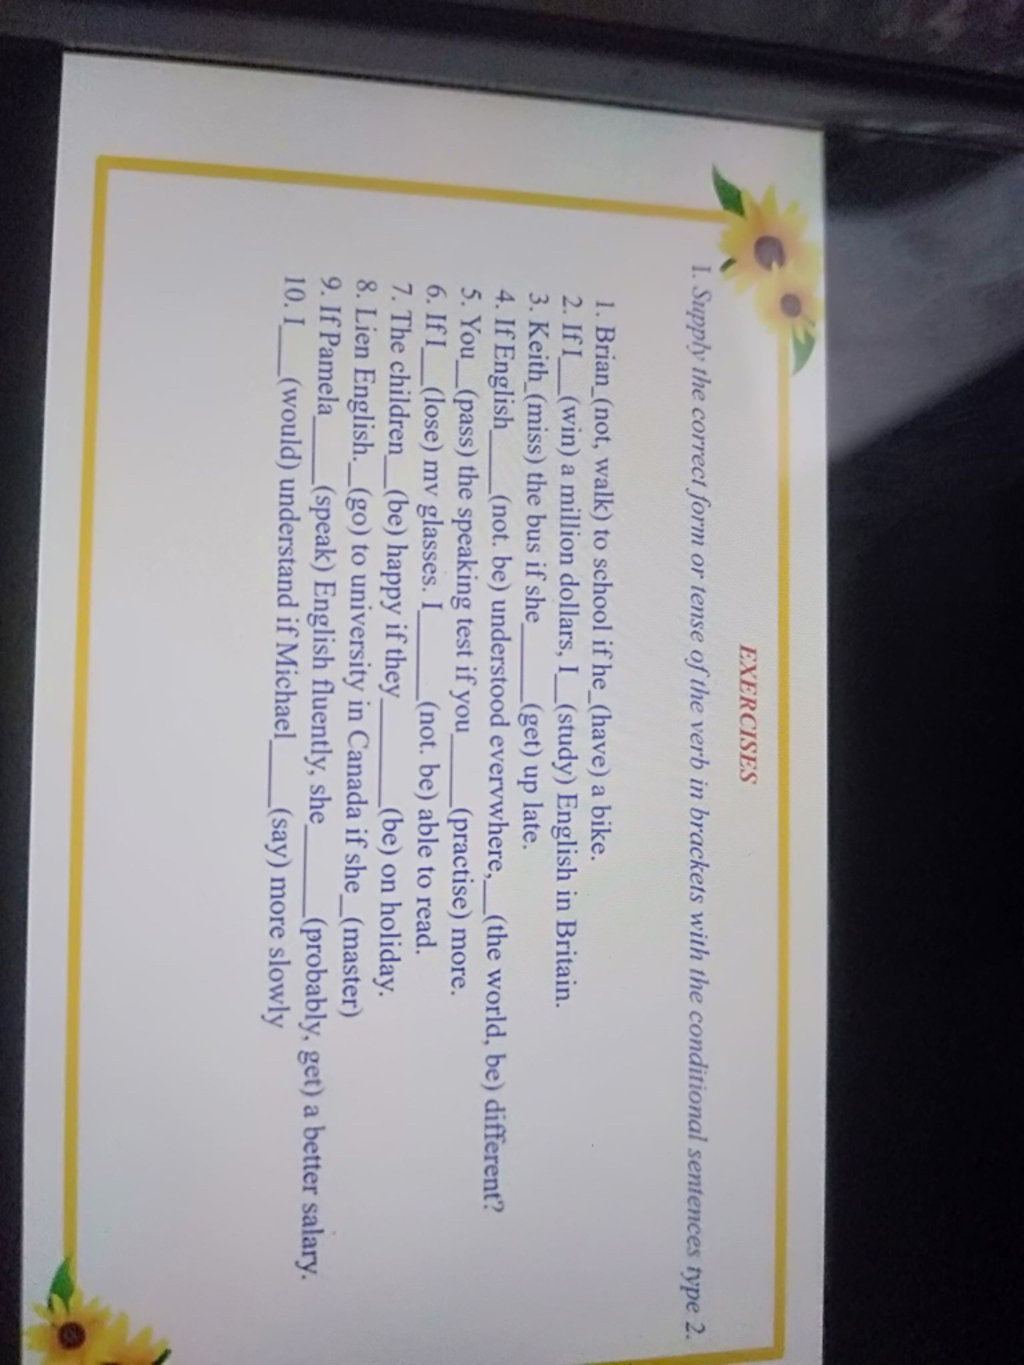 EXERCISES
I. Supply the correct form or tense of the verb in brackets with the conditional sentences type 2.
1. Brian_(not, walk) to school if he_(have) a bike.
2. If I___(win) a million dollars, I__(study) English in Britain.
3. Keith_(miss) the bus if she______(get) up late.
4. If English_____(not. be) understood evervwhere,__(the world, be) different?
5. You__(pass) the speaking test if you_____(practise) more.
6. If I__(lose) mv glasses. I______(not. be) able to read.
7. The children__(be) happy if they________(be) on holiday.
8. Lien English._(go) to university in Canada if she_(master)
9. If Pamela_____(speak) English fluently, she______(probably, get) a better salary.
10. I____(would) understand if Michael_____(say) more slowly